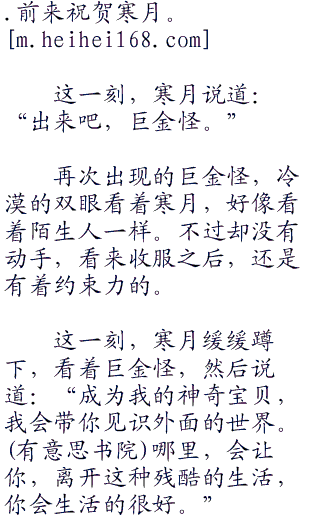 .前来祝贺寒月。
[m.heihei168.com]
这一刻，寒月说道：
“出来吧，巨金怪。”
再次出现的巨金怪，冷
漠的双眼看着寒月，好像看
着陌生人一样。不过却没有
动手，看来收服之后，还是
有着约束力的。
这一刻，寒月缓缓蹲
下，看着巨金怪，然后说
道：“成为我的神奇宝贝，
我会带你见识外面的世界。
(有意思书院)哪里，会让
你，离开这种残酷的生活，
你会生活的很好。”